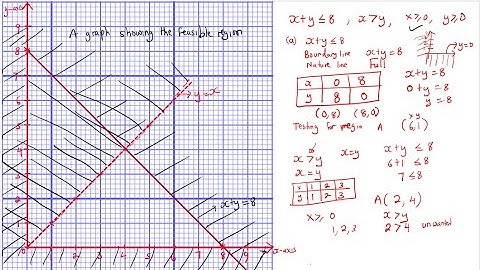 y-axis
A graph showing the feasible region
9
8
7
6
5
4
3
2
1
0
1 2 3 4 5 6 7 8 9
x-axis
→ y=x
→ x+y=8
x+y ≤ 8 , x>y , x≥0, y≥0
(a) x+y ≤ 8
Boundary line x+y = 8
Nature line Full
y=0
x 0 8
y 8 0
(0,8) (8,0)
x+y = 8
0+y = 8
y = 8
Testing for A
x y
(6,1)
x>y x=y
x=y
x+y ≤ 8
6+1 ≤ 8
7 ≤ 8
x 1 2 3
y 1 2 3
A(2,4)
x≥0
1, 2, 3
x>y
2>4